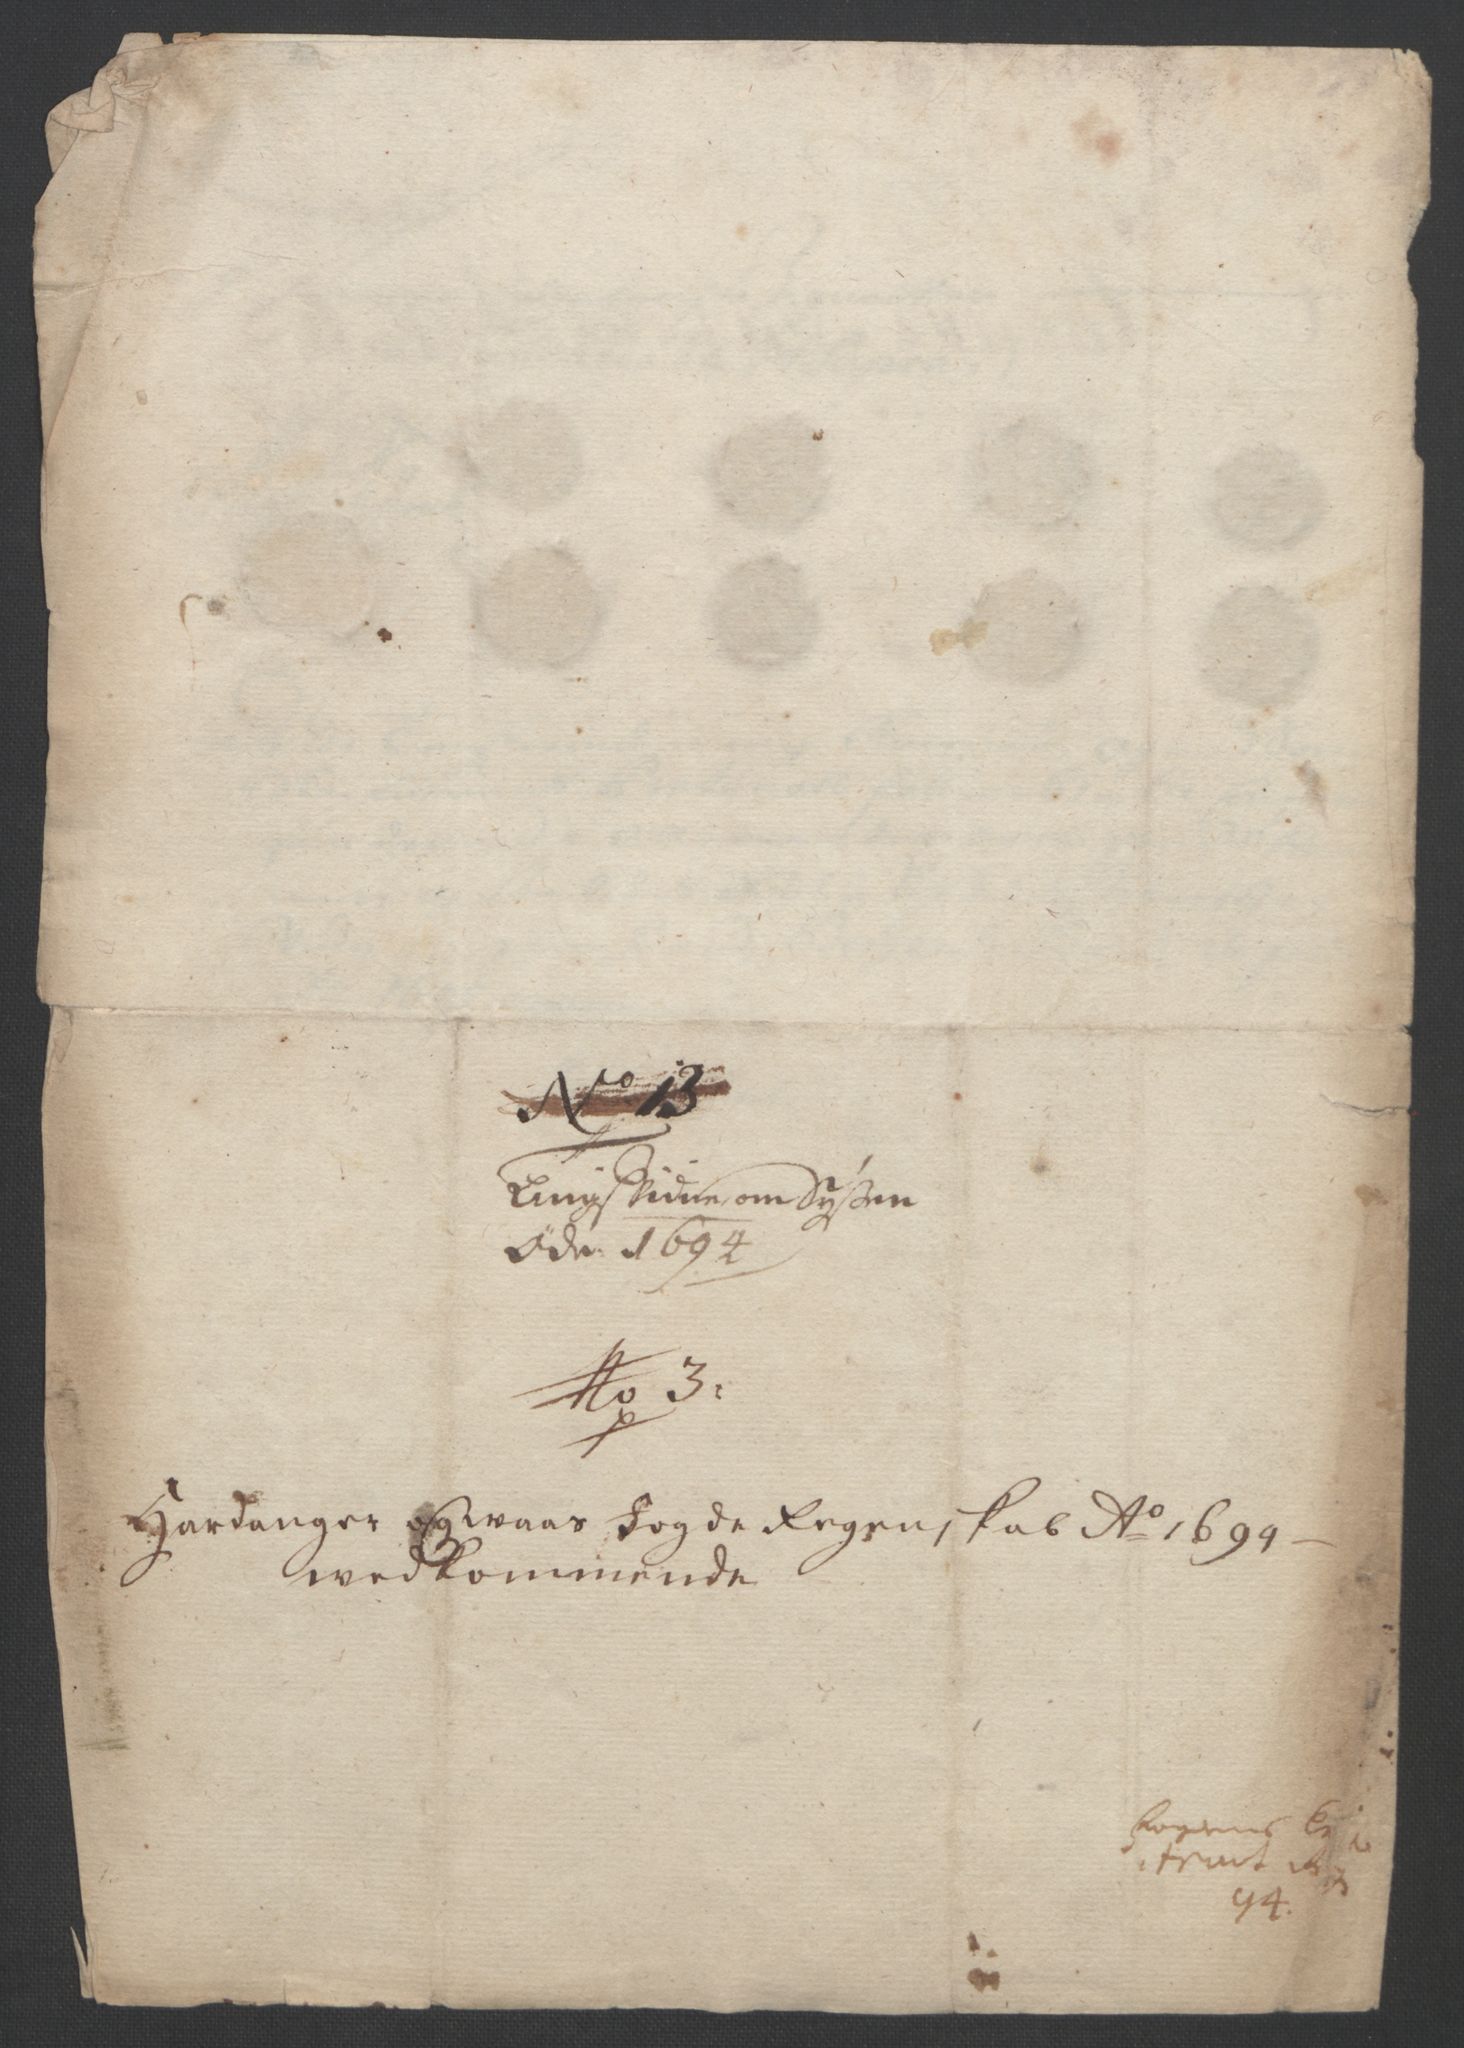 No 13
Tingsvidne, om Sÿslen
Øde 1694
No 3:
Hardanger og Waas Fogde Regenskab Ao 1694
wedkommende
94.